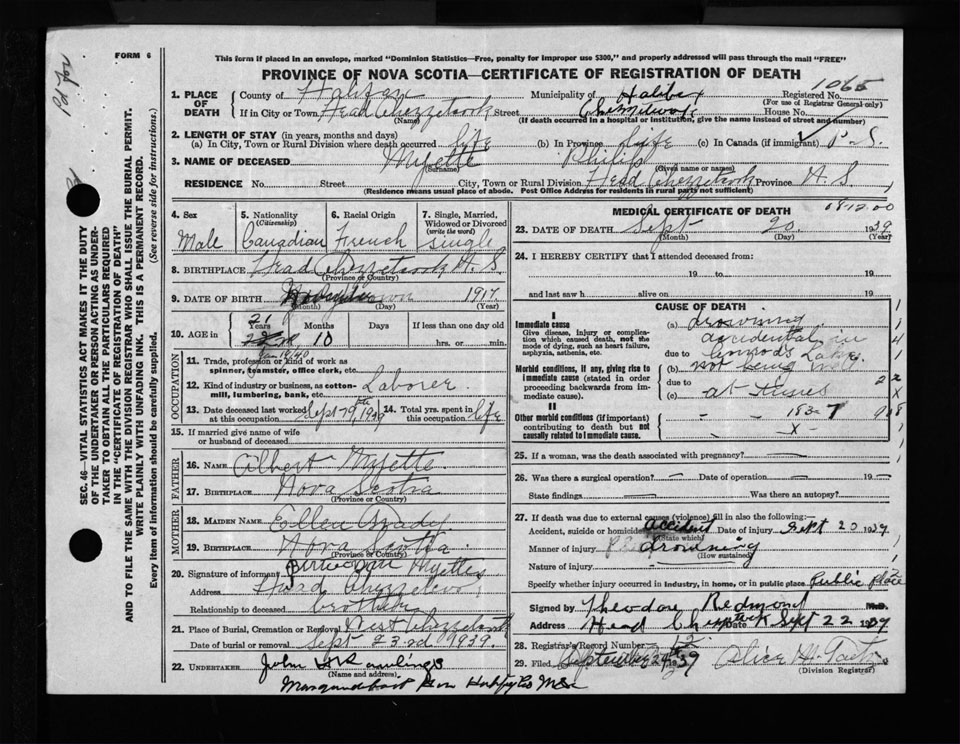 FORM 6
This form if placed in an envelope, marked "Dominion Statistics—Free, penalty for improper use $300," and properly addressed will pass through the mail "FREE"
PROVINCE OF NOVA SCOTIA—CERTIFICATE OF REGISTRATION OF DEATH
1065
1. PLACE OF DEATH
County of Halifax Municipality of Halifax Registered No.
(For use of Registrar General only)
If in City or Town, Head Chezzetcook Street House No.
(Name) (If death occurred in a hospital or institution, give the name instead of street and number)
2. LENGTH OF STAY (in years, months and days)
(a) In City, Town or Rural Division where death occurred life (b) In Province life (c) In Canada (if immigrant)
3. NAME OF DECEASED Myette Philip
(Surname) (Given name or names)
RESIDENCE No. Street City, Town or Rural Division Head Chezzetcook Province N.S.
(Residence means usual place of abode. Post Office Address for residents in rural parts not sufficient)
4. Sex
Male
5. Nationality
(Citizenship)
Canadian
6. Racial Origin
French
7. Single, Married, Widowed or Divorced
(write the word)
Single
8. BIRTHPLACE Head Chezzetcook N.S.
(Province or Country)
9. DATE OF BIRTH 1917
(Month) (Day) (Year)
10. AGE in
21
Years Months Days If less than one day old
10 hrs. or min.
OCCUPATION
11. Trade, profession or kind of work as
spinner, teamster, office clerk, etc.
12. Kind of industry or business, as cotton-
mill, lumbering, bank, etc. Laborer
13. Date deceased last worked at this occupation Sept 1939
14. Total yrs. spent in this occupation life
15. If married give name of wife
or husband of deceased
FATHER
16. NAME Albert Myette
17. BIRTHPLACE Nova Scotia
(Province or Country)
MOTHER
18. MAIDEN NAME Ellen Grady
19. BIRTHPLACE Nova Scotia
(Province or Country)
20. Signature of informant Myette
Address Head Chezzetcook
Relationship to deceased brother
21. Place of Burial, Cremation or Removal West Chezzetcook
Date of burial or removal Sept 23rd 1939.
22. UNDERTAKER John Rawlings
(Name and address)
Musquodoboit Hfx Co N.S.
MEDICAL CERTIFICATE OF DEATH
23. DATE OF DEATH Sept 20 1939
(Month) (Day) (Year)
24. I HEREBY CERTIFY that I attended deceased from:
19 to 19
and last saw h alive on 19
CAUSE OF DEATH
I
Immediate cause
Give disease, injury or complication which caused death, not the mode of dying, such as heart failure, asphyxia, asthenia, etc.
(a) drowning
accidental in
due to Lake
Morbid conditions, if any, giving rise to immediate cause (stated in order proceeding backwards from immediate cause).
(b) not being well
due to
(c) at times
II
Other morbid conditions (if important) contributing to death but not causally related to immediate cause.
183
25. If a woman, was the death associated with pregnancy?
26. Was there a surgical operation? Date of operation 19
State findings Was there an autopsy?
27. If death was due to external causes (violence) fill in also the following:
Accident, suicide or homicide accident Date of injury Sept 20 1939
(State which)
Manner of injury drowning
(How sustained)
Nature of injury
Specify whether injury occurred in industry, in home, or in public place Public Place
Signed by Theodore Redmond M.D.
Address Head Chezzetcook Date Sept 22 1939
28. Registrar's Record Number
29. Filed September 24th 39 Alice
(Division Registrar)
SEC. 46—VITAL STATISTICS ACT MAKES IT THE DUTY
OF THE UNDERTAKER OR PERSON ACTING AS UNDER-
TAKER TO OBTAIN ALL THE PARTICULARS REQUIRED
IN THE "CERTIFICATE OF REGISTRATION OF DEATH"
AND TO FILE THE SAME WITH THE DIVISION REGISTRAR WHO SHALL ISSUE THE BURIAL PERMIT.
WRITE PLAINLY WITH UNFADING INK. THIS IS A PERMANENT RECORD.
Every item of information should be carefully supplied. (See reverse side for instructions.)